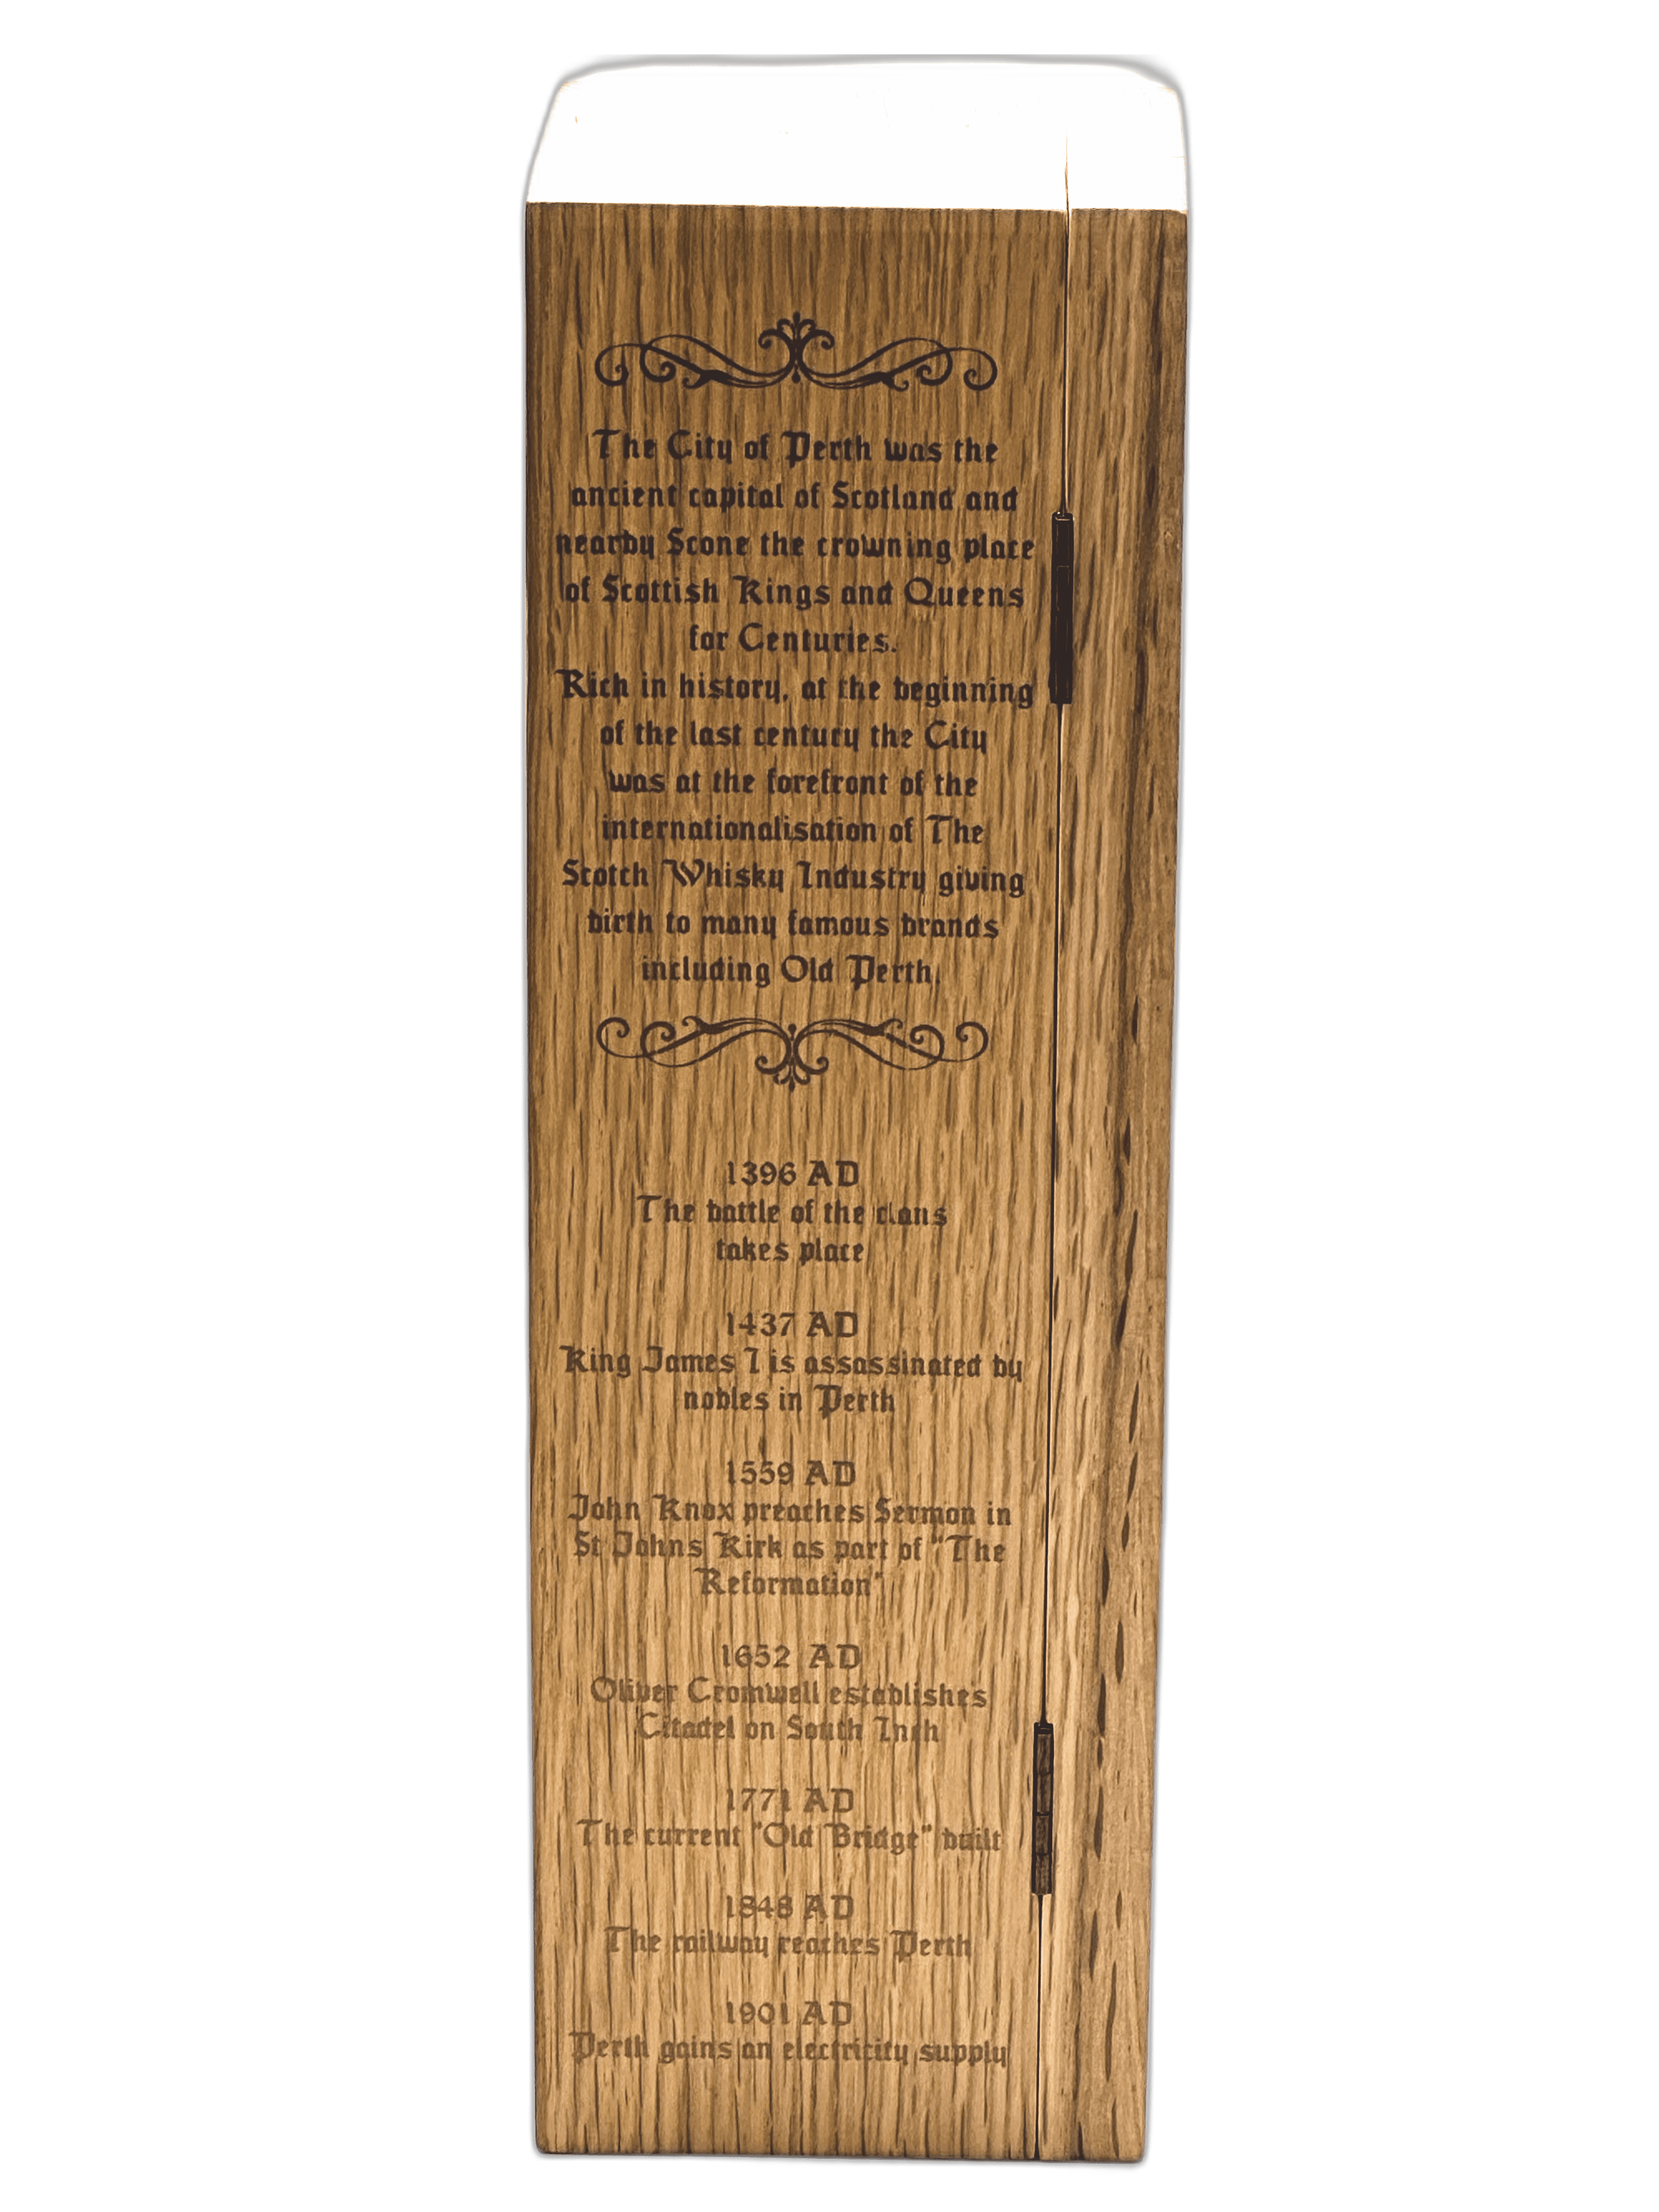 The City of Perth was the
ancient capital of Scotland and
nearby Scone the crowning place
of Scottish Kings and Queens
for Centuries.
Rich in history, at the beginning
of the last century the City
was at the forefront of the
internationalisation of The
Scotch Whisky Industry giving
birth to many famous brands
including Old Perth.
1396 AD
The battle of the clans
takes place
1437 AD
King James I is assassinated by
nobles in Perth
1559 AD
John Knox preaches Sermon in
St Johns Kirk as part of "The
Reformation"
1652 AD
Oliver Cromwell establishes
Citadel on South Inch
1771 AD
The current "Old Bridge" built
1848 AD
The railway reaches Perth
1901 AD
Perth gains an electricity supply